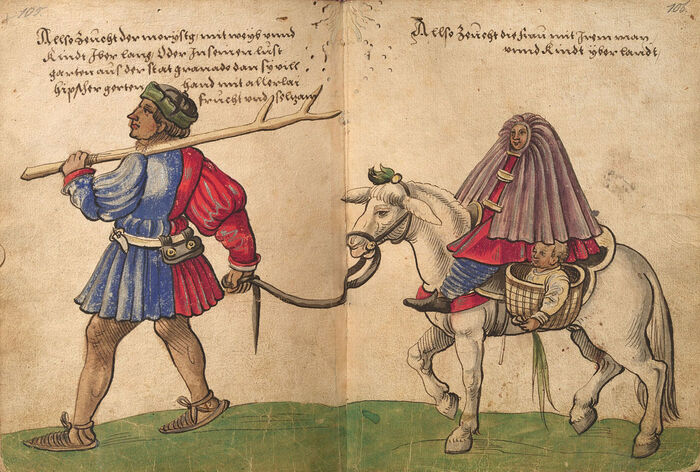 105
Allso Zeucht der morystg mit weyb vnnd
Kindt Jber lang Oder Jn seinen lust
garten aus der stat granado dan sy vill
hipscher gerten hand mit allerlai
frucht vnd selzam
106
Allso Zeucht die frau mit Jrem man
vnnd Kindt yber landt